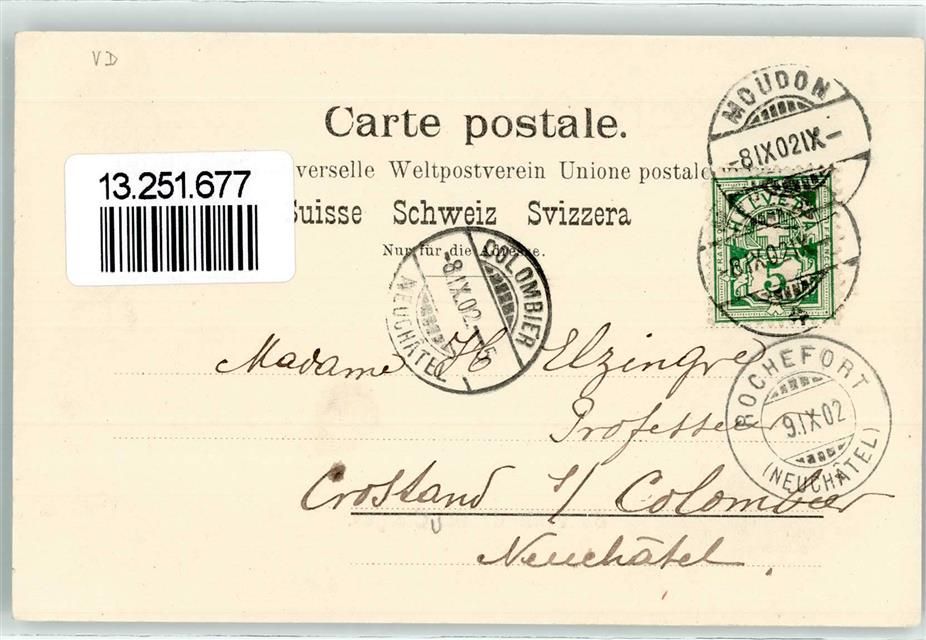 VD
Carte postale.
13.251.677
verselle Weltpostverein Unione postale
Suisse Schweiz Svizzera
Nur für die Adresse.
MOUDON
-8IX02IX-
HELVETIA
5
-8IX02
COLOMBIER
-8.IX.02.-5
NEUCHÂTEL
ROCHEFORT
9.IX 02
(NEUCHÂTEL)
Madame H. Elzingre
Professeur
Crostand s/ Colombier
Neuchâtel.